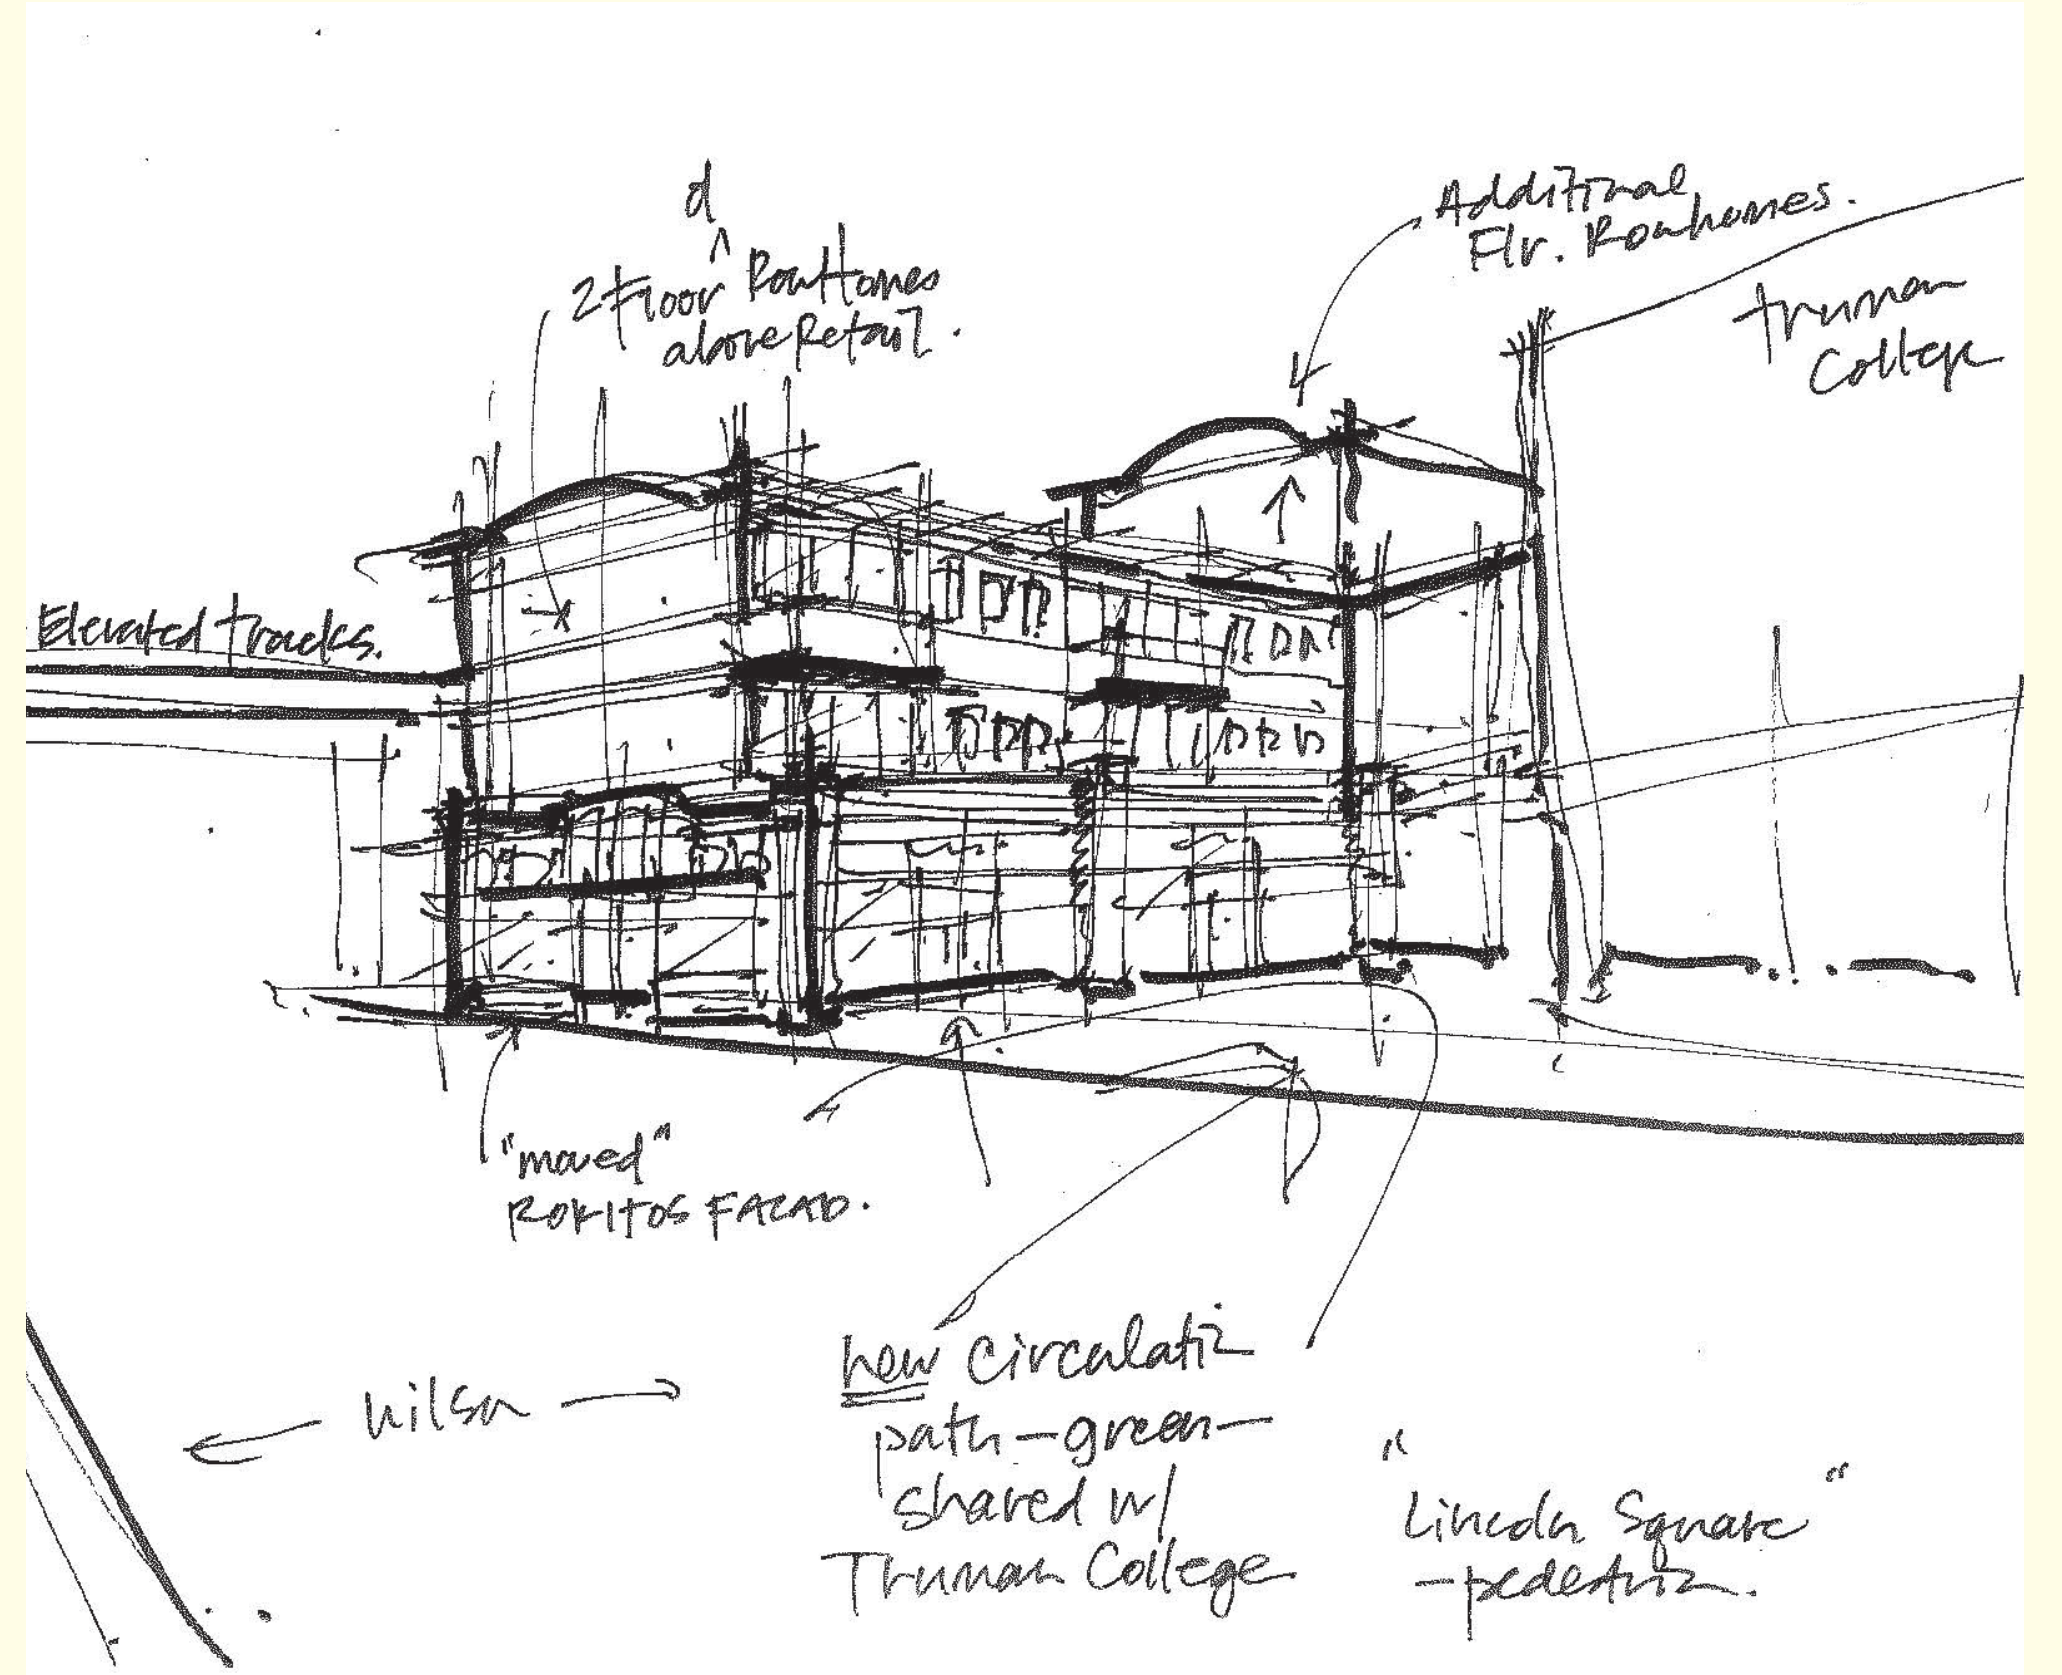 d
^
2 Floor RowHomes
above Retail.
Additional
Flr. Rowhomes.
Truman
College
Elevated tracks.
"moved"
ROKITOS FACAD.
← Wilson →
new Circulation
path-green-
shared w/
Truman College
"Lincoln Square"
-pedestrian.